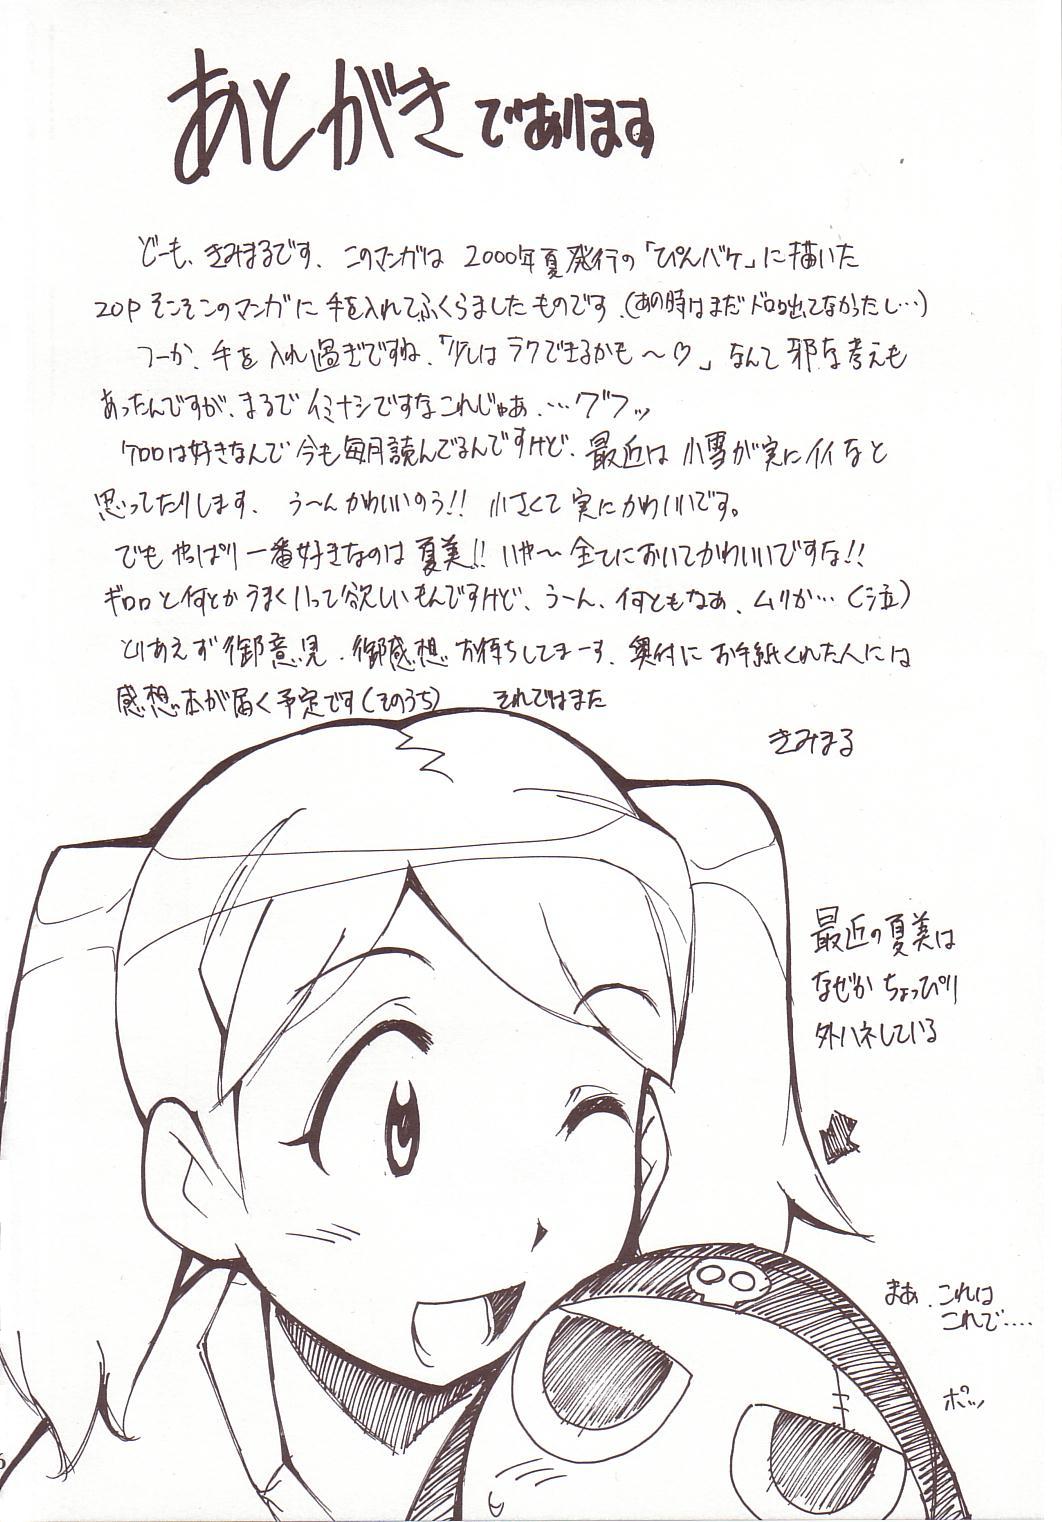 あとがきであります
どーも、きみまるです、このマンガは2000年夏発行の「ぴんバケ」に描いた
20Pそこそこのマンガに手を入れてふくらましたものです、(あの時はまだドロロ出てなかったし…)
つーか、手を入れ過ぎですね、「少しはラクできるかも～♡」なんて邪な考えも
あったんですが、まるでイミナシですなこれじゃあ、…グフッ
ケロロは好きなんで今も毎月読んでるんですけど、最近は小雪が実にイイなと
思ってたりします、う～んかわいいのう!!小さくて実にかわいいです。
でもやっぱり一番好きなのは夏美!!いや～全てにおいてかわいいですな!!
ギロロと何とかうまくいって欲しいもんですけど、うーん、何ともなあ、ムリか…(泣)
とりあえず御意見、御感想お待ちしてまーす、奥付にお手紙くれた人には
感想本が届く予定です(そのうち) それではまた
きみまる
最近の夏美は
なぜかちょっぴり
外ハネしている
まあ、これは
これで‥‥
ポッ
6